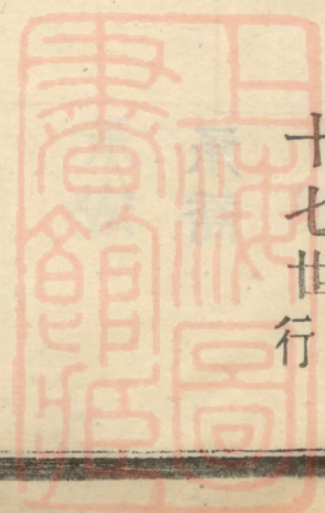 十七世行
上海圖
書館藏